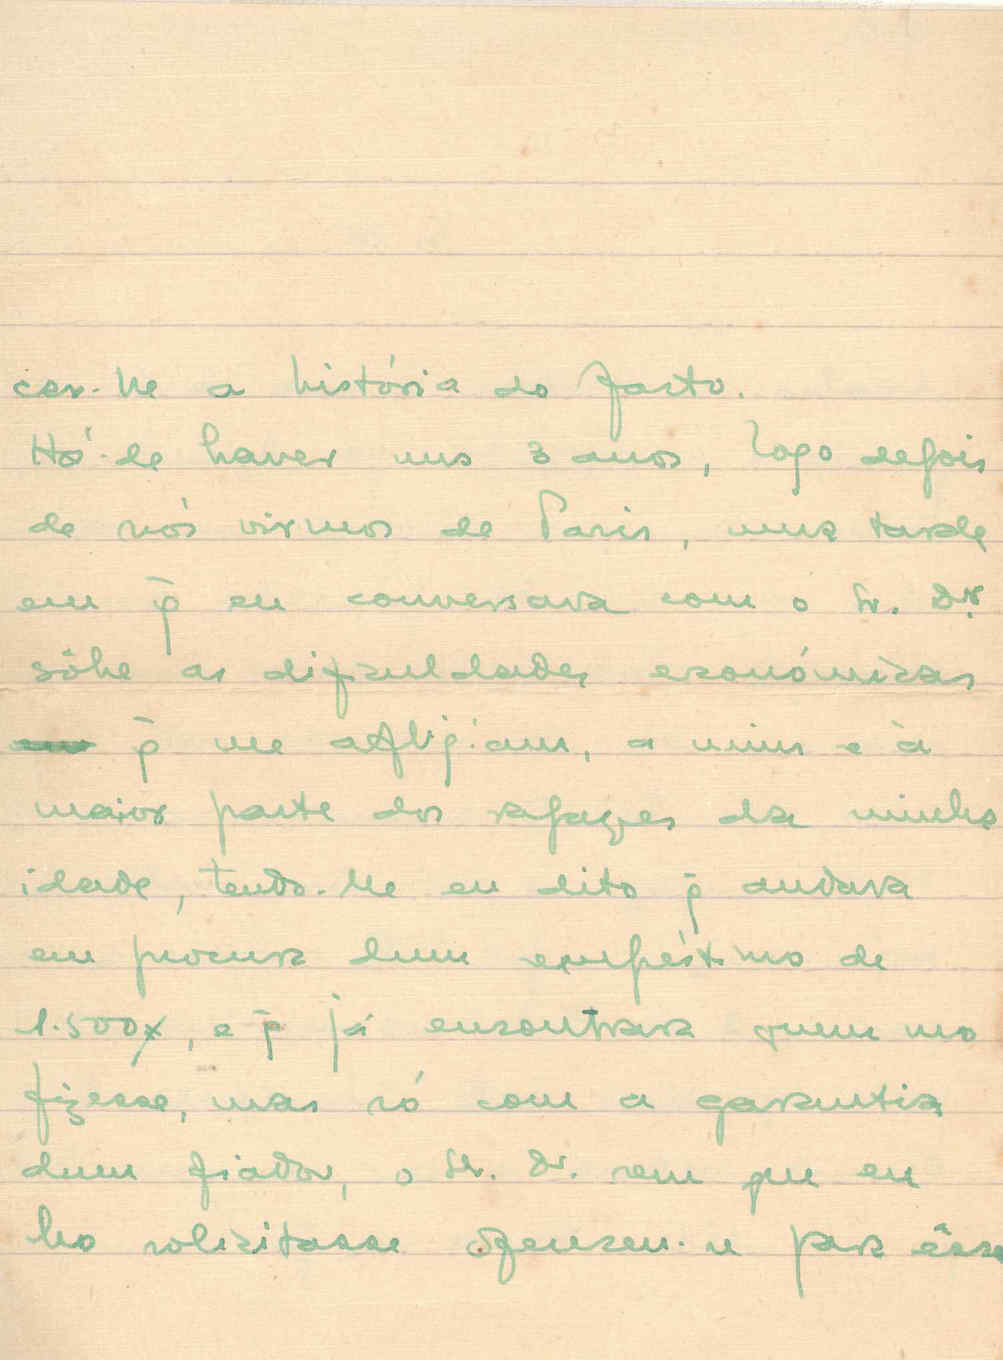 cer-lhe a história do facto.
Há-de haver uns 3 anos, logo depois
de nós virmos de Paris, uma tarde
em q̄ eu conversava com o Sr. Dr.
sôbre as dificuldades económicas
q̄ me afligiam, a mim e à
maior parte dos rapazes da minha
idade, tendo-lhe eu dito q̄ andava
em procura dum empréstimo de
1.500$, e q̄ já encontrara quem mo
fizesse, mas só com a garantia
dum fiador, o Sr. Dr. sem que eu
lho solicitasse ofereceu-se para êsse